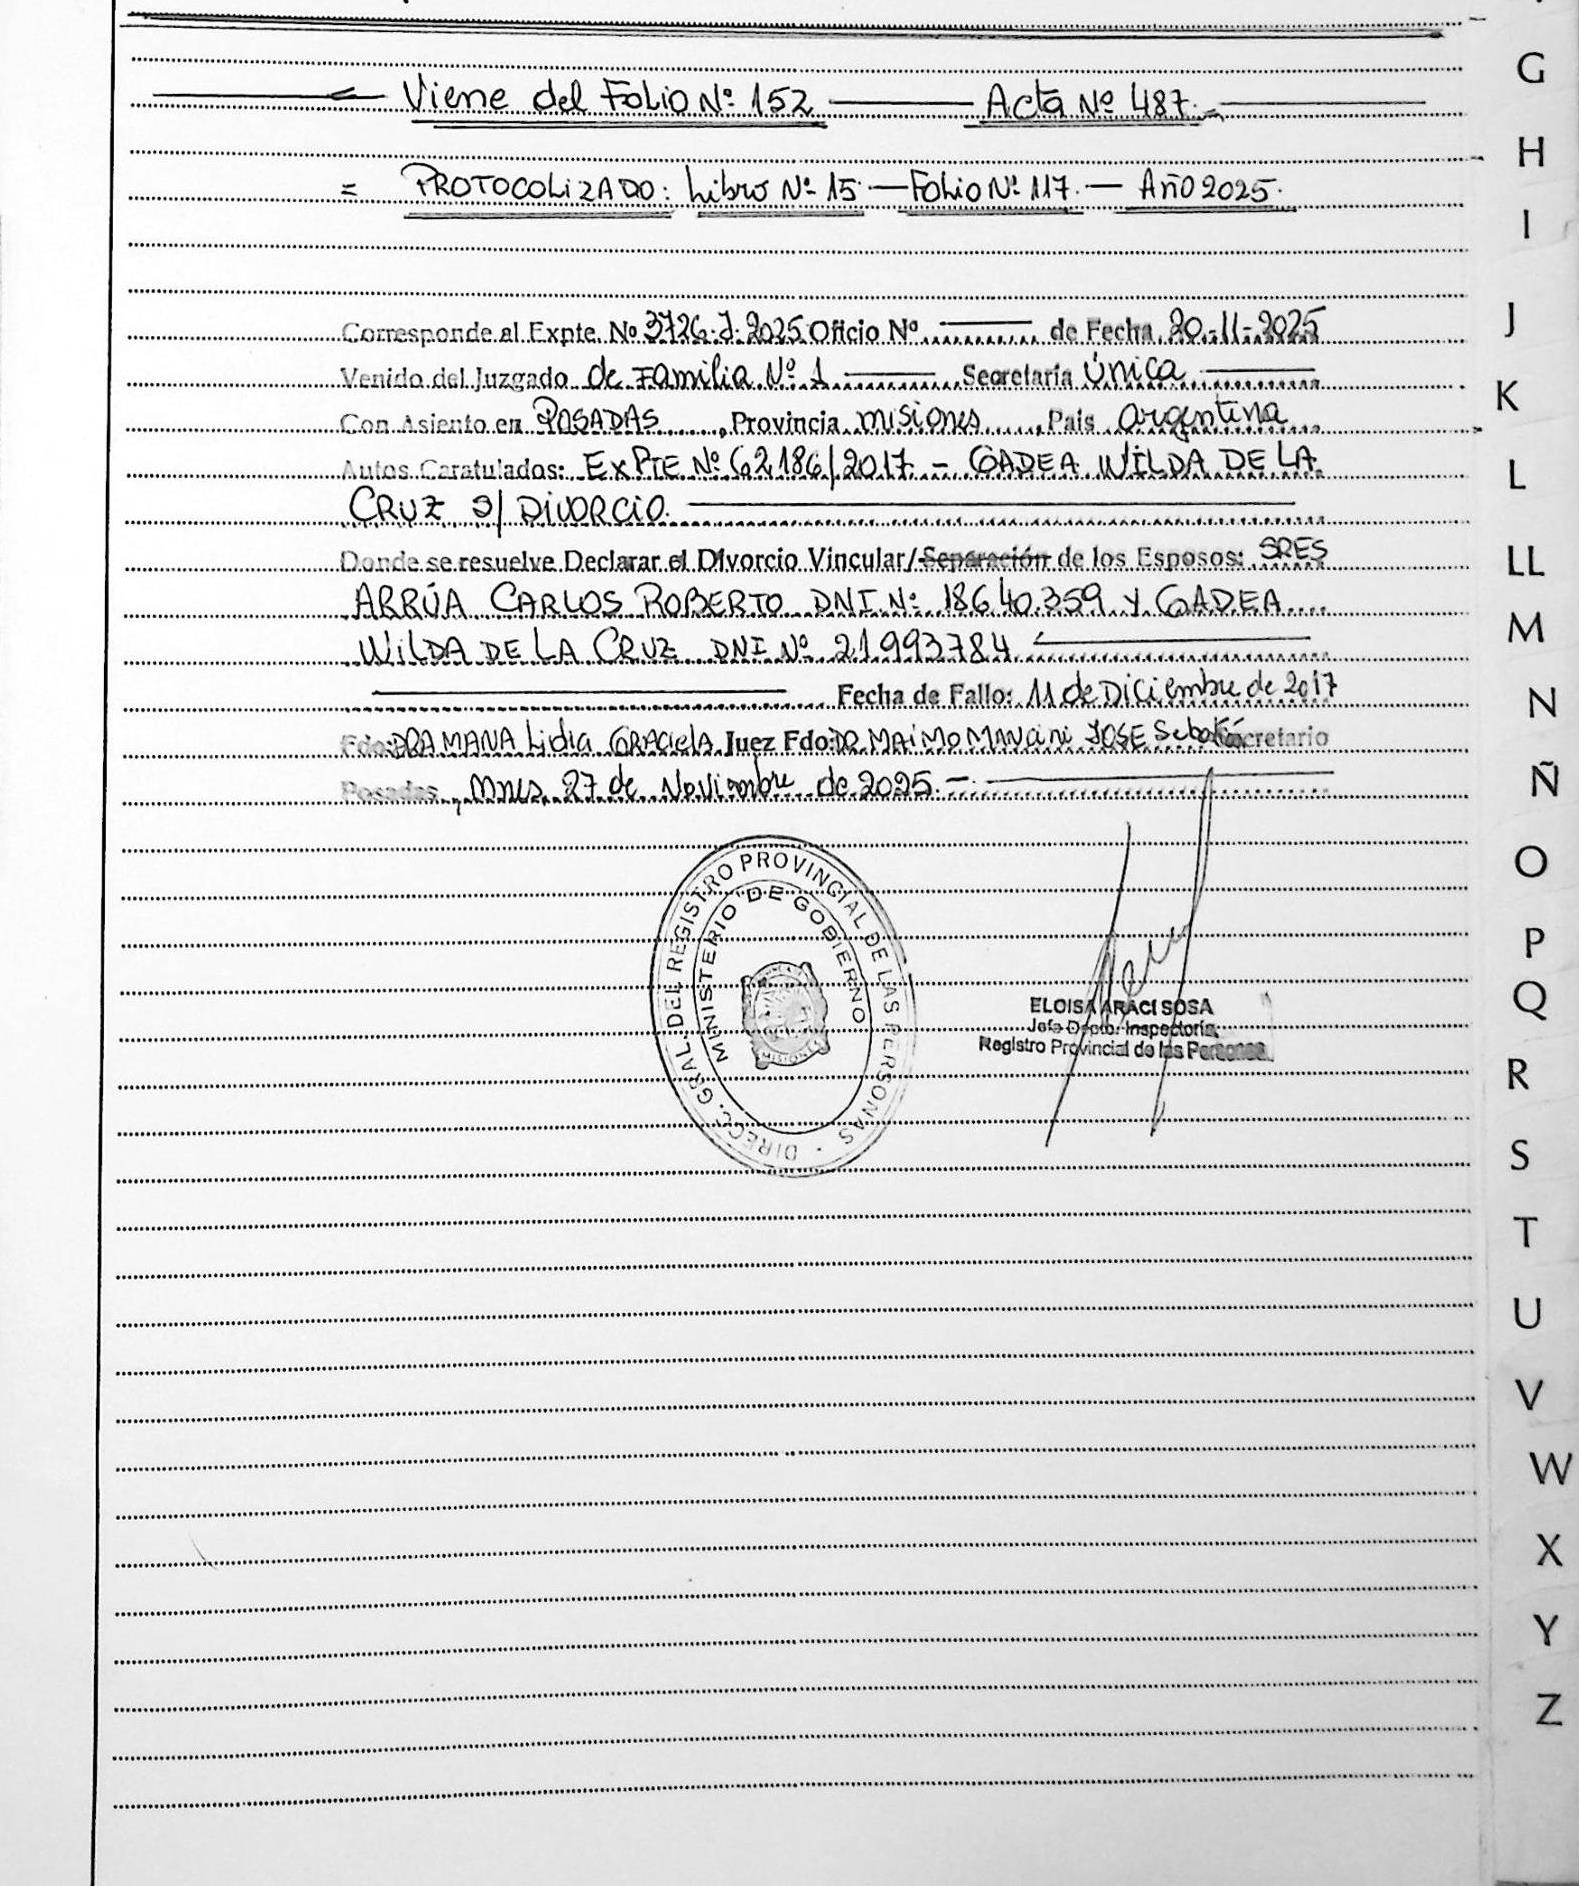 Viene del Folio Nº 152 Acta Nº 487.
= PROTOCOLIZADO: Libro Nº 15 — Folio Nº 117. — Año 2025.
Corresponde al Expte. Nº 3726-J-2025 Oficio Nº de Fecha 20-11-2025
Venido del Juzgado de Familia Nº 1 Secretaría Única
Con Asiento en POSADAS, Provincia misiones, País argentina
Autos Caratulados: EXPTE Nº 62186/2017 - GADEA WILDA DE LA
CRUZ S/ DIVORCIO.
Donde se resuelve Declarar el Divorcio Vincular/Separación de los Esposos: SRES
ARRÚA CARLOS ROBERTO DNI Nº 18640.359 Y GADEA
WILDA DE LA CRUZ DNI Nº 21993784
Fecha de Fallo: 11 de Diciembre de 2017
Fdo: DRA MANA Lidia GRACIELA Juez Fdo: DR MAIMO MANCINI JOSE Secretario
Posadas, Mnes 27 de Noviembre de 2025 -
DIRECC. GRAL. DEL REGISTRO PROVINCIAL DE LAS PERSONAS
MINISTERIO DE GOBIERNO
MISIONES
ELOISA ARACI SOSA
Jefe Depto. Inspectoría
Registro Provincial de las Personas
G
H
I
J
K
L
LL
M
N
Ñ
O
P
Q
R
S
T
U
V
W
X
Y
Z